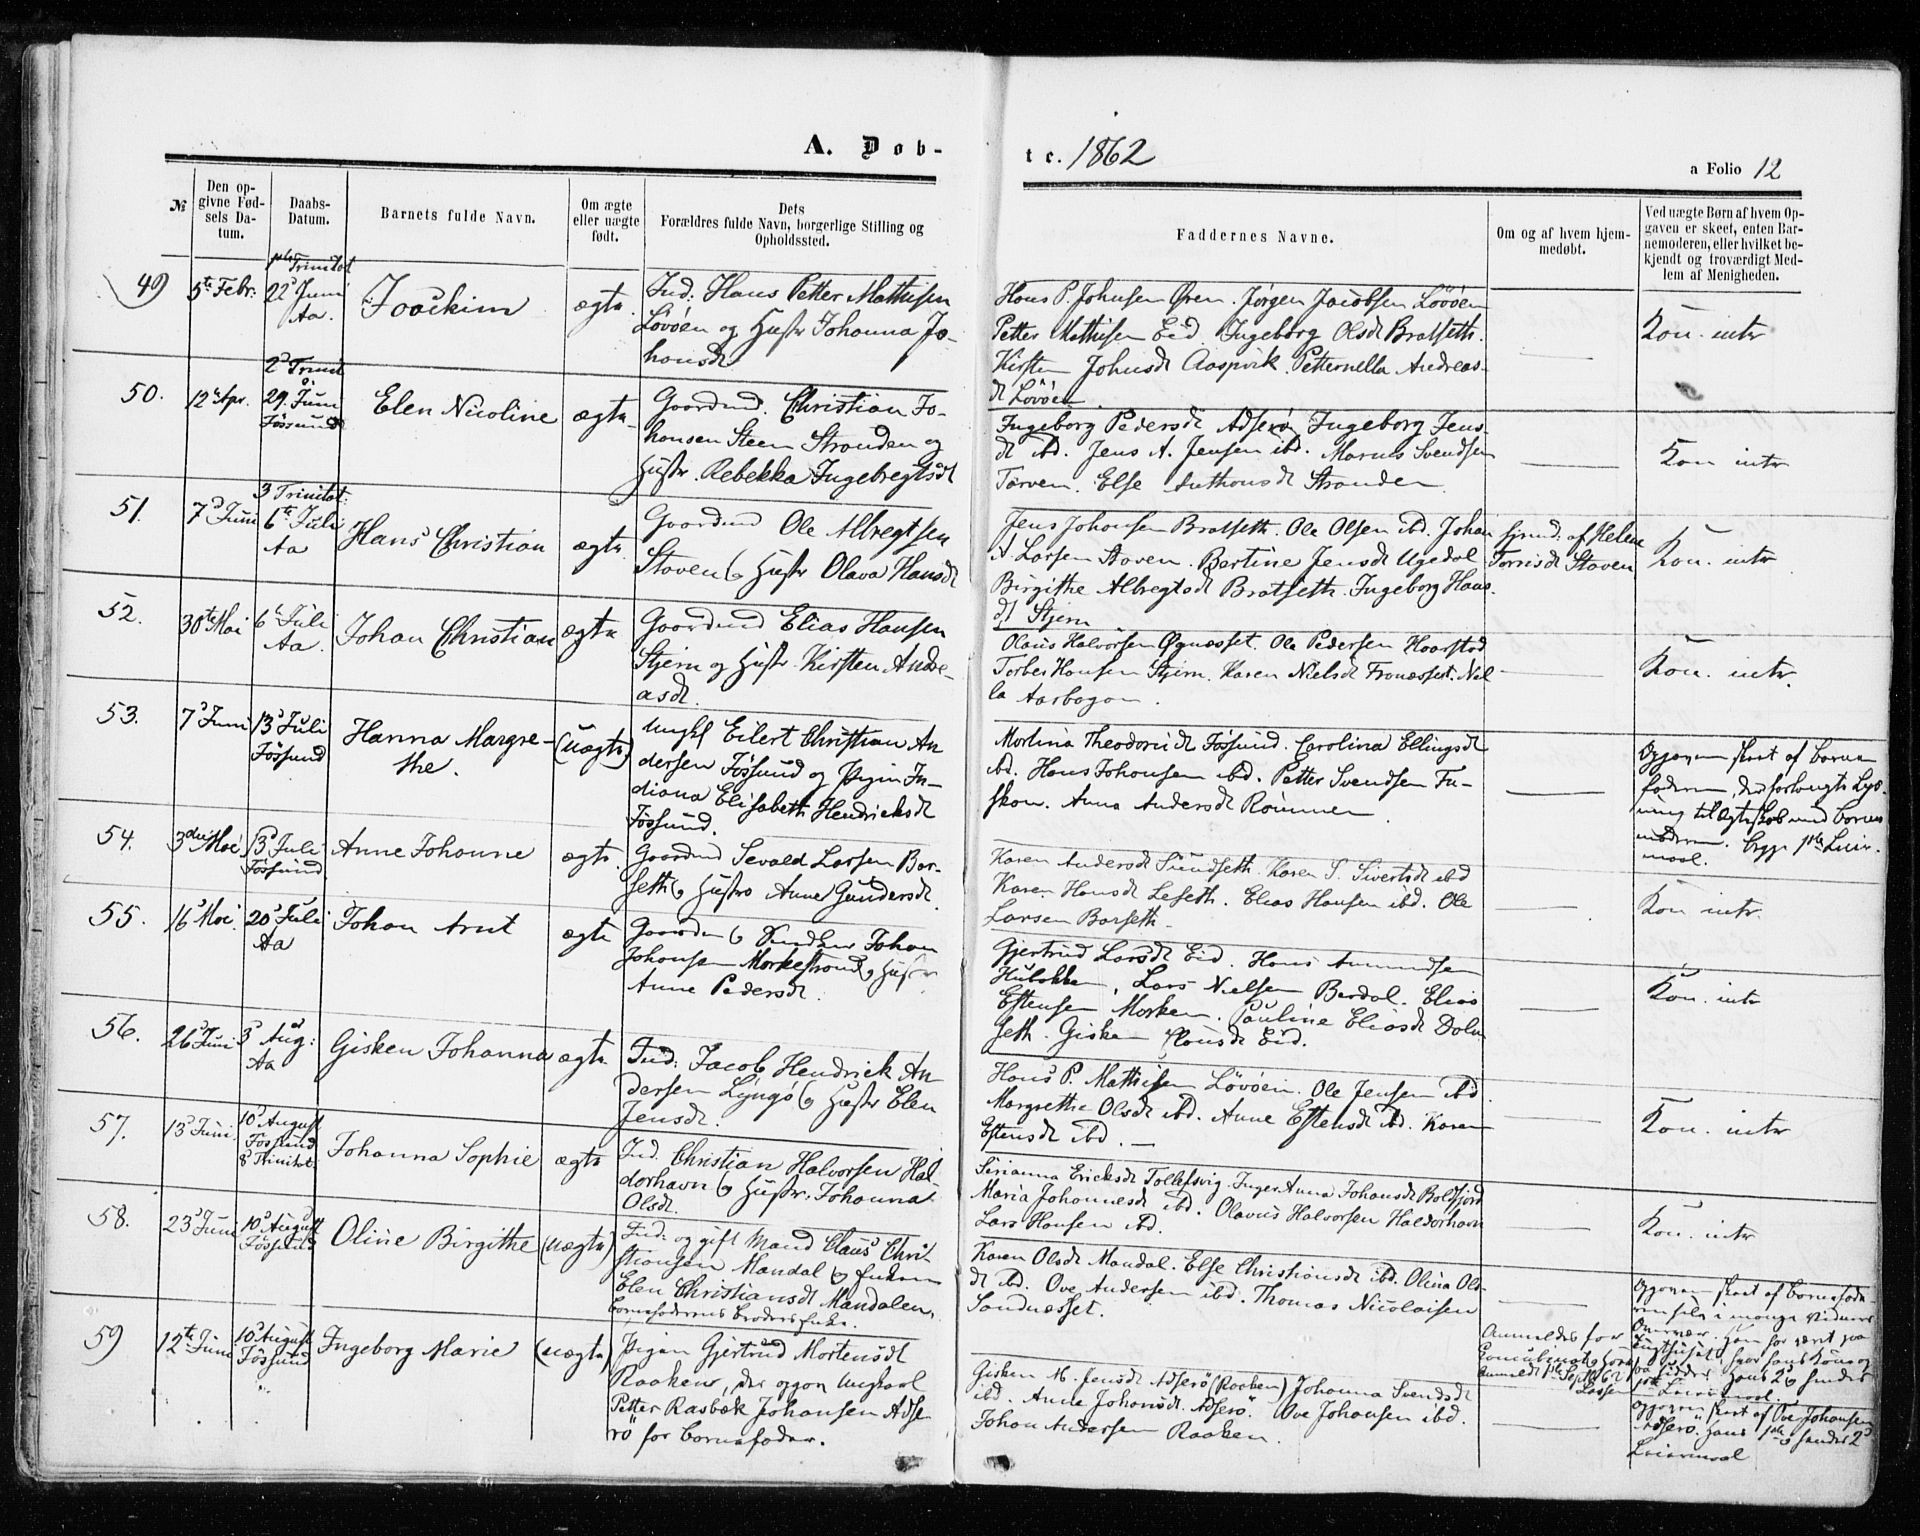 A. Døb-
te. 1862
a Folio 12
№
Den op-
givne Fød-
sels Da-
tum.
Daabs-
Datum.
Barnets fulde Navn.
Om ægte
eller uægte
født.
Dets
Forældres fulde Navn, borgerlige Stilling og
Opholdssted.
Faddernes Navne.
Om og af hvem hjem-
medøbt.
Ved uægte Børn af hvem Op-
gaven er skeet, enten Bar-
nemoderen, eller hvilket be-
kjendt og troværdigt Med-
lem af Menigheden.
49
5te Febr:
Trinitat
22 Juni
Aa.
Joackim
ægte
Ind: Hans Petter Mathisen
Lövöen og Hustr Johanna Jo-
hansdt
Hans P. Johnsen Øren. Jørgen Jacobsen Lövöen
Petter Mathisen Eid. Ingeborg Olsdt Bratseth.
Kirsten Johnsdt Aaspvik. Petternella Andreas-
dt Lövöen
Kon. intr
50.
12te Apr.
2d Trinit
29. Juni
Fössund
Elen Nicoline
ægte
Gaardmd. Christian Jo-
hansen Steen Stranden og
Hustr. Rebekka Ingebregtsdt
Ingeborg Pedersdt Adserø Ingeborg Jens-
dt ibd. Jens A. Jensen ibd. Marius Svendsen
Tørven. Else Anthonsdt Stranden.
Kon intr
51.
7d Juni
3 Trinitat:
6te Juli
Aa
Hans Christian
ægte
Gaardmd Ole Albregtsen
Staven og Hustr Olava Hansdt
Jens Johansen Bratseth. Ole Olsen ibd. Johan
A Larsen Staven. Bertine Jensdt Ugedal
Birgithe Albregtsdt Bratseth. Ingeborg Hans
dt Stjern
Hjemd: af Helene
Torrisdt Staven
Kon. intr
52.
30te Mai
6te Juli
Aa.
Johan Christian
ægte
Gaardmd Elias Hansen
Stjern og Hustr. Kirsten Andre-
asdt
Olaus Halvorsen Øgnæsset. Ole Pedersen Haarstad
Torber Hansen Stjern. Karen Nielsdt Franæsset. Nil-
la Aarbogen.
Kon. intr.
53.
7d Juni
13d Juli
Fössund
Hanna Margre-
the.
(uægte)
Ungkl Eilert Christian An
dersen Fössund og Pigen In-
diana Elisabeth Hendricksdt
Fössund.
Martina Theodorisdt Fössund. Carolina Ellingsdt
ibd. Hans Johansen ibd. Petter Svendsen Fu-
skan. Anna Andersdt Rømmen
Opgaven skeet af barne
faderen, der forlangte Lys-
ning til Ægteskab med barne
moderen. Begge 1ste Leier-
maal.
54.
3die Mai
13d Juli
Fössund.
Anne Johanne
ægte.
Gaardmd Sevald Larsen Bar-
seth og Hustro Anne Gundersdt
Karen Andersdt Sundseth. Karen S. Sivertsdt ibd
Karen Hansdt Leseth. Elias Hansen ibd. Ole
Larsen Barseth.
Kon. intr.
55.
16d Mai
20d Juli
Aa
Johan Arnt
ægte
Johan
Johansen Morkestrand og Hustr
Anne Pedersdt.
Gjertrud Larsdt Eid. Hans Amundsen
Hubakken, Lars Nielsen Berdal. Elias
Estensen Morken. Pauline Eliasdt Dolm
seth. Gisken Clausdt Eid.
Kon. intr
56.
26d Juni
3d Aug:
Aa
Gisken Johanna
ægte
Ind: Jacob Hendrick An
dersen Lyngø og Hustr Elen
Jensdt.
Hans P. Mathisen Lövöen. Ole Jensen ibd.
Margrethe Olsdt ibd. Anne Estensdt ibd. Karen
Estensdt ibd.
Kon. intr
57.
13d Juni
10d August
Fössund
8 Trinitat.
Johanna Sophie
ægte
Ind. Christian Halvorsen Hal
dorhavn og Hustr. Johanna
Olsdt.
Serianna Ericksdt Tollefsvig. Inger Anna Johansdt Boldfjord
Maria Johannesdt ibd. Olavus Halvorsen Haldorhavn
Lars Hansen ibd.
Kon. intr
58.
23d Juni
10d August
Fössund
Oline Birgithe
(uægte)
Ind: og gift Mand Claus Chri
stiansen Mandal og Enken
Elen Christiansdt Mandalen,
barnefaderens broders Enke.
Karen Olsdt Mandal. Else Christiansdt ibd. Olina Ols-
dt ibd. Ove Andersen ibd. Thomas Nicolaisen
Sandnæsset.
Anmeldes for
Concubinat og Hoer
anmeldt 1ste Sept 62
Lassen
Opgaven skeet af barnefade
ren selv i mange Vidners
Overvær. Han har været paa
Tugthuset, hvor hans Kone og
sidder. Hans 2d hendes
1ste Leiermaal.
59
12te Juni
10d August
Fössund
Ingeborg Marie
(uægte)
Pigen Gjertrud Mortensdt
Raaken, der opgav Ungkarl
Petter Rasbæk Johansen Adse
rö for barnefader.
Gisken M. Jensdt Adserö (Raaken) Johanna Svendsdt
ibd. Anne Johansdt Adserö. Ove Johansen ibd.
Johan Andersen Raaken.
Opgaven skeet af Ove Johansen
Adserö. Hans 1ste hendes 2d
Leiermaal